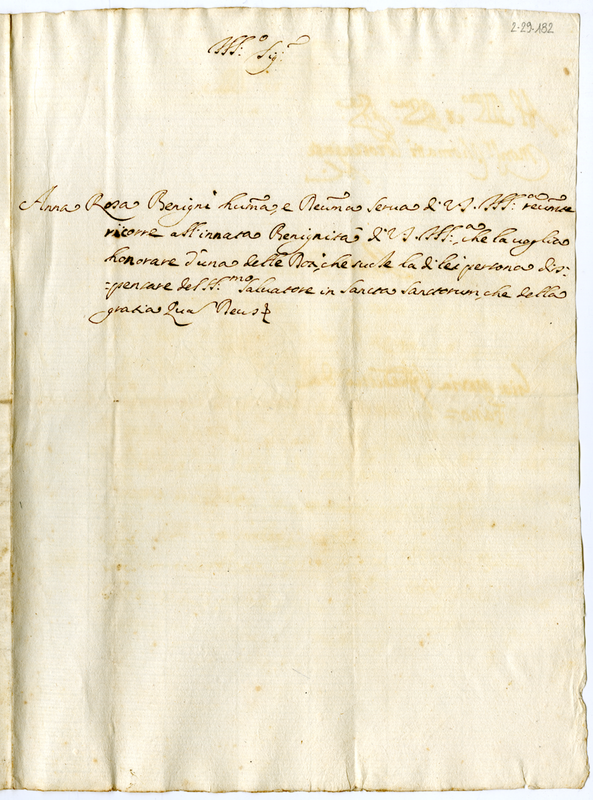 2-29-182
Ill:mo Sig:r
Anna Rosa Benigni hum̃a, e Deuõma serua di V.S. Ill:ma reuerte
ricorre all'innata Benignità di V.S. Ill:ma che la voglia
honorare d'una delle Doti, che suole la di lei persona dis=
=pensare del S.mo Saluatore in Sancta Sanctorum, che della
gratia Qua Deus